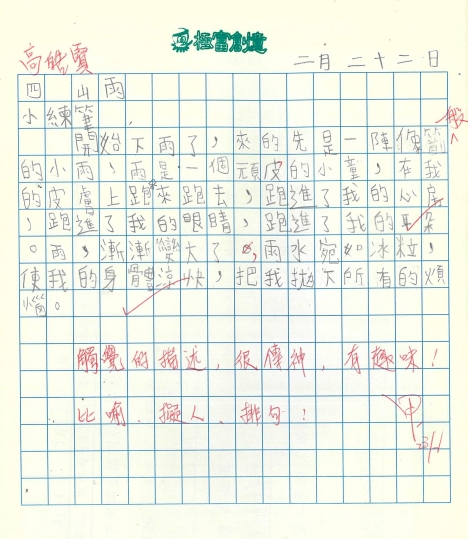 極富創憶
高皓賢
二月二十二日
四山雨
小練筆
開始下雨了,來的先是一陣像箭般
的小雨,雨是一個頑皮的小童,在我
的皮膚上跑來跑去,跑進了我的心房
,跑進了我的眼睛,跑進了我的耳朵
。雨,漸漸變大了,雨水宛如冰粒,
使我的身體涼快,把我拋下所有的煩
惱。
觸覺的描述,很傳神,有趣味!
比喻、擬人、排句!
甲